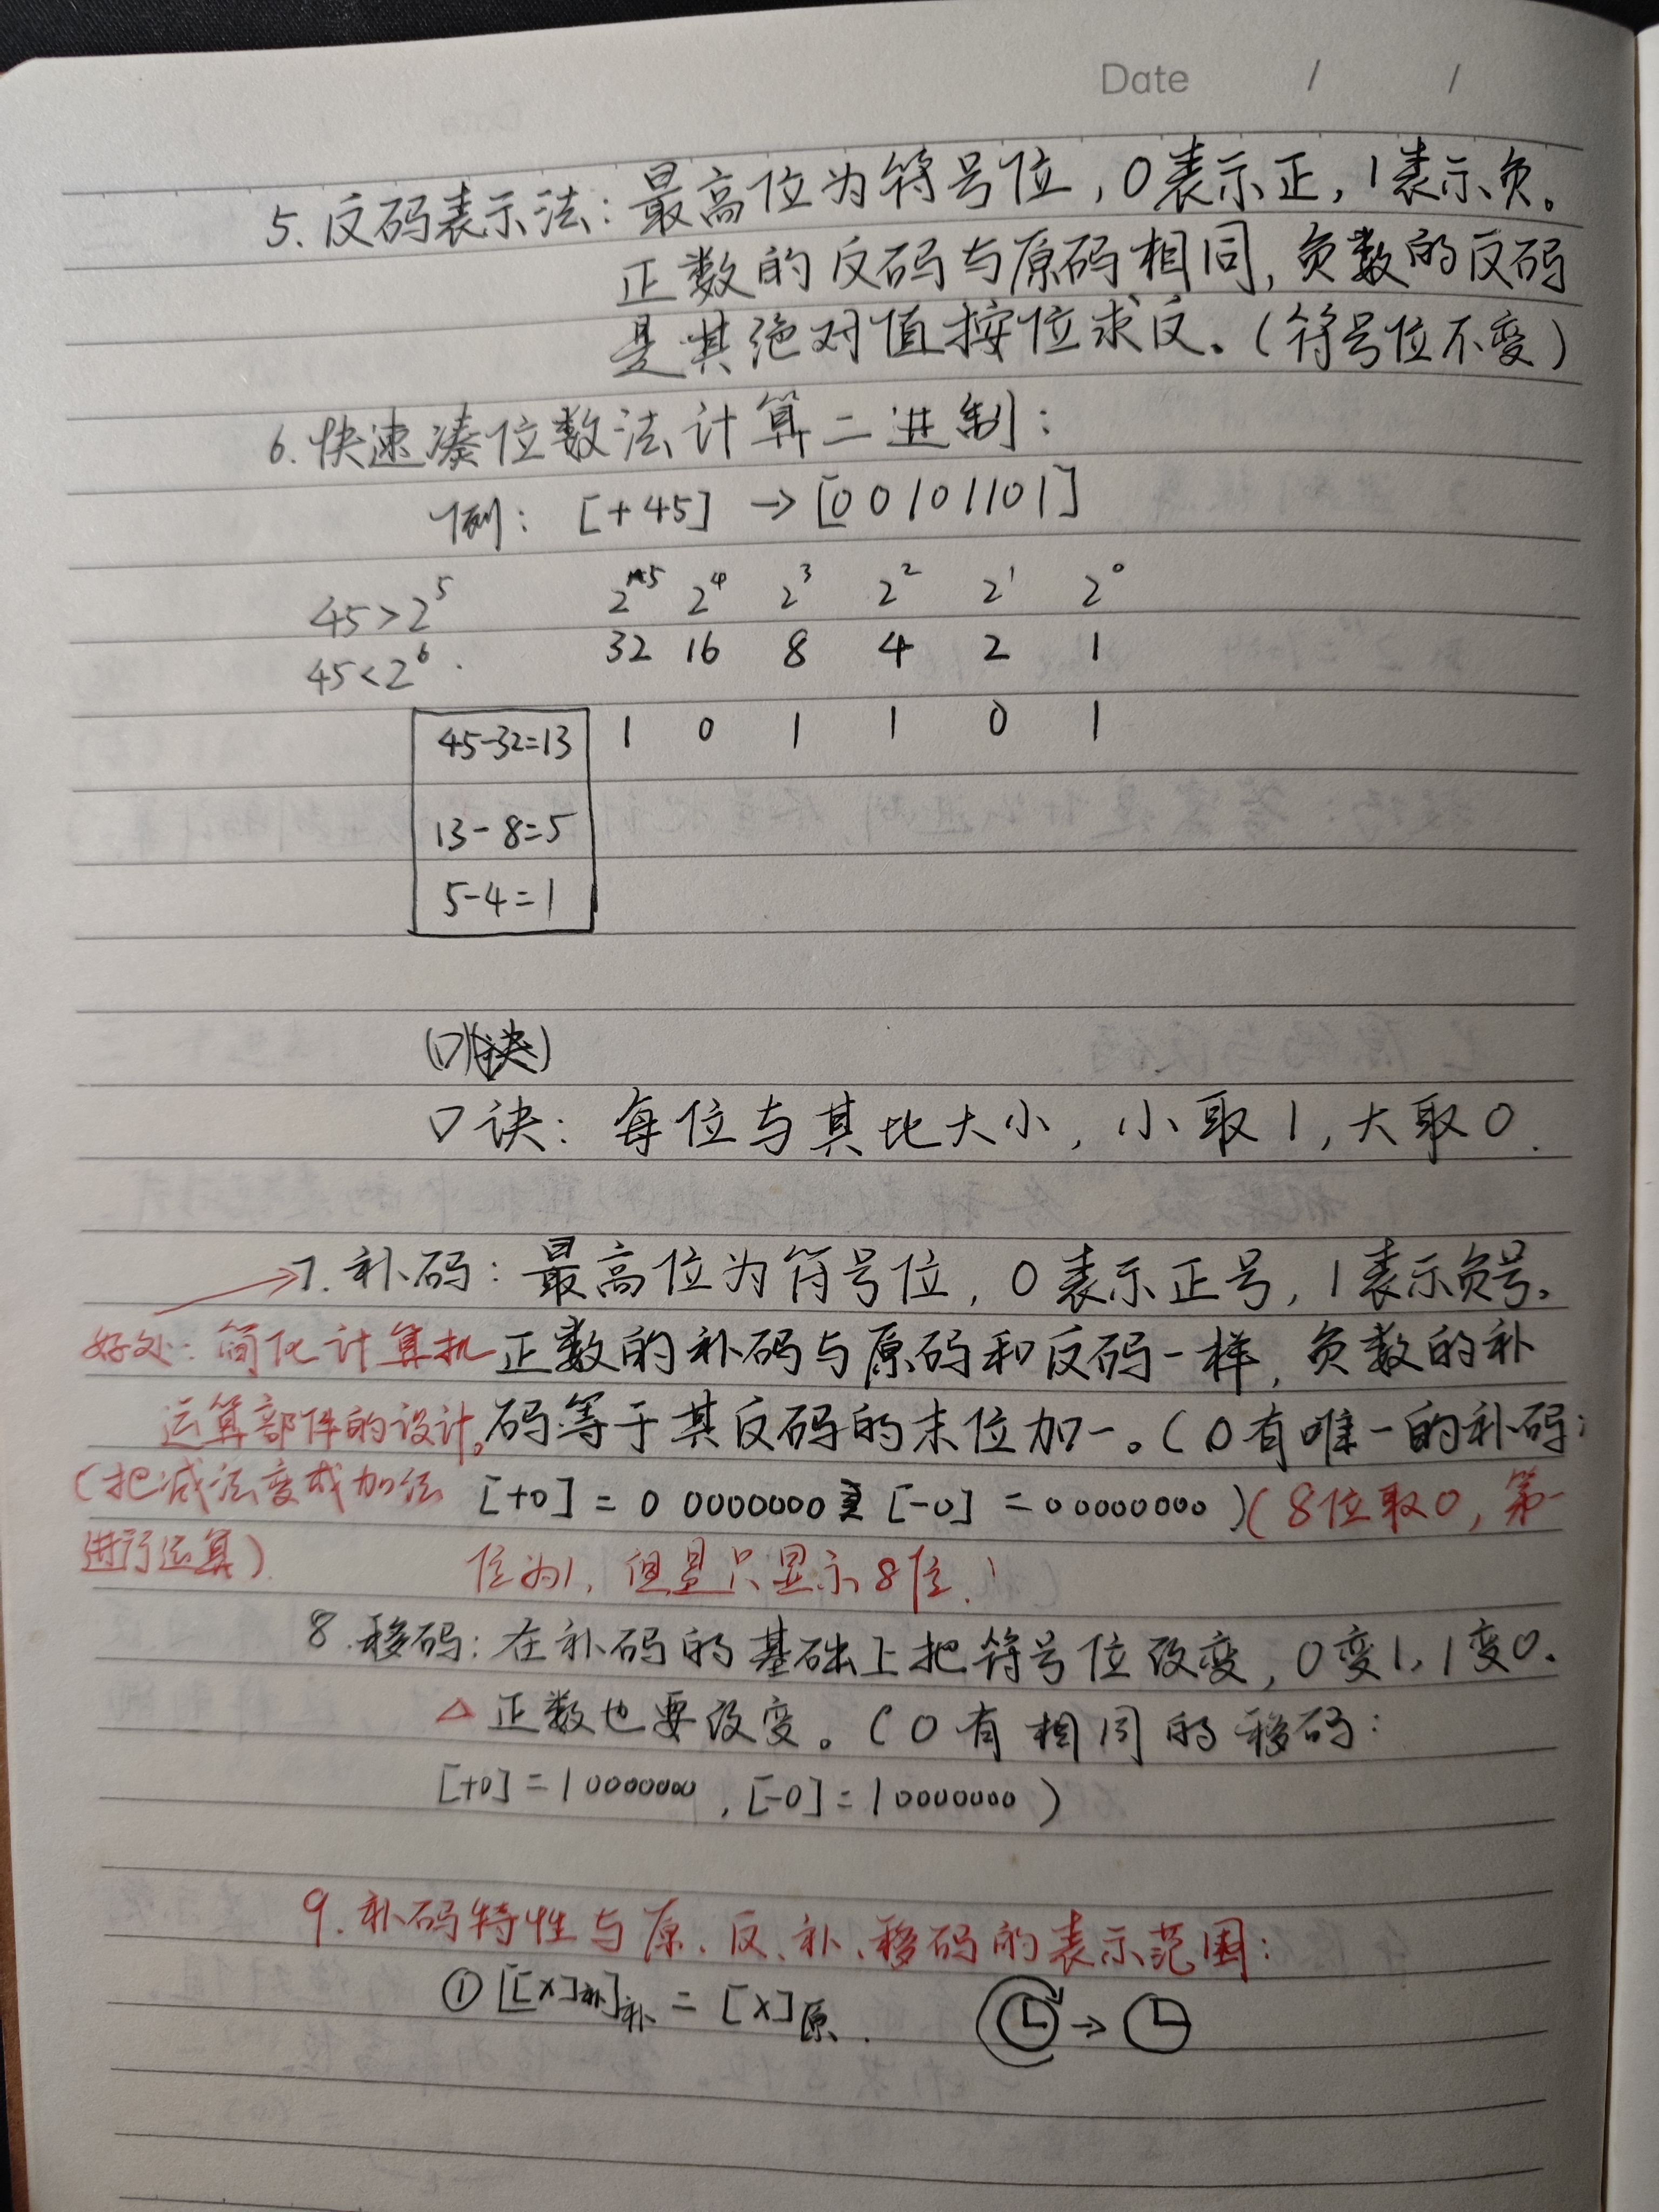 Date / /
5. 反码表示法：最高位为符号位，0表示正，1表示负。
正数的反码与原码相同，负数的反码
是其绝对值按位求反。（符号位不变）
6. 快速凑位数法计算二进制：
例：[+45] → [00101101]
45>2⁵
2⁵ 2⁴ 2³ 2² 2¹ 2⁰
45<2⁶
32 16 8 4 2 1
45-32=13
1 0 1 1 0 1
13-8=5
5-4=1
口诀：每位与其比大小，小取1，大取0.
7. 补码：最高位为符号位，0表示正号，1表示负号。
正数的补码与原码和反码一样，负数的补
码等于其反码的末位加一。（0有唯一的补码：
[+0] = 0 0000000 [-0] = 0 0000000）（8位取0，第一
位为1，但是只显示8位.）
好处：简化计算机
运算部件的设计。
（把减法变成加法
进行运算）
8. 移码：在补码的基础上把符号位改变，0变1，1变0.
△ 正数也要改变。（0有相同的移码：
[+0] = 1 0000000，[-0] = 1 0000000）
9. 补码特性与原、反、补、移码的表示范围：
① [[X]补]补 = [X]原.